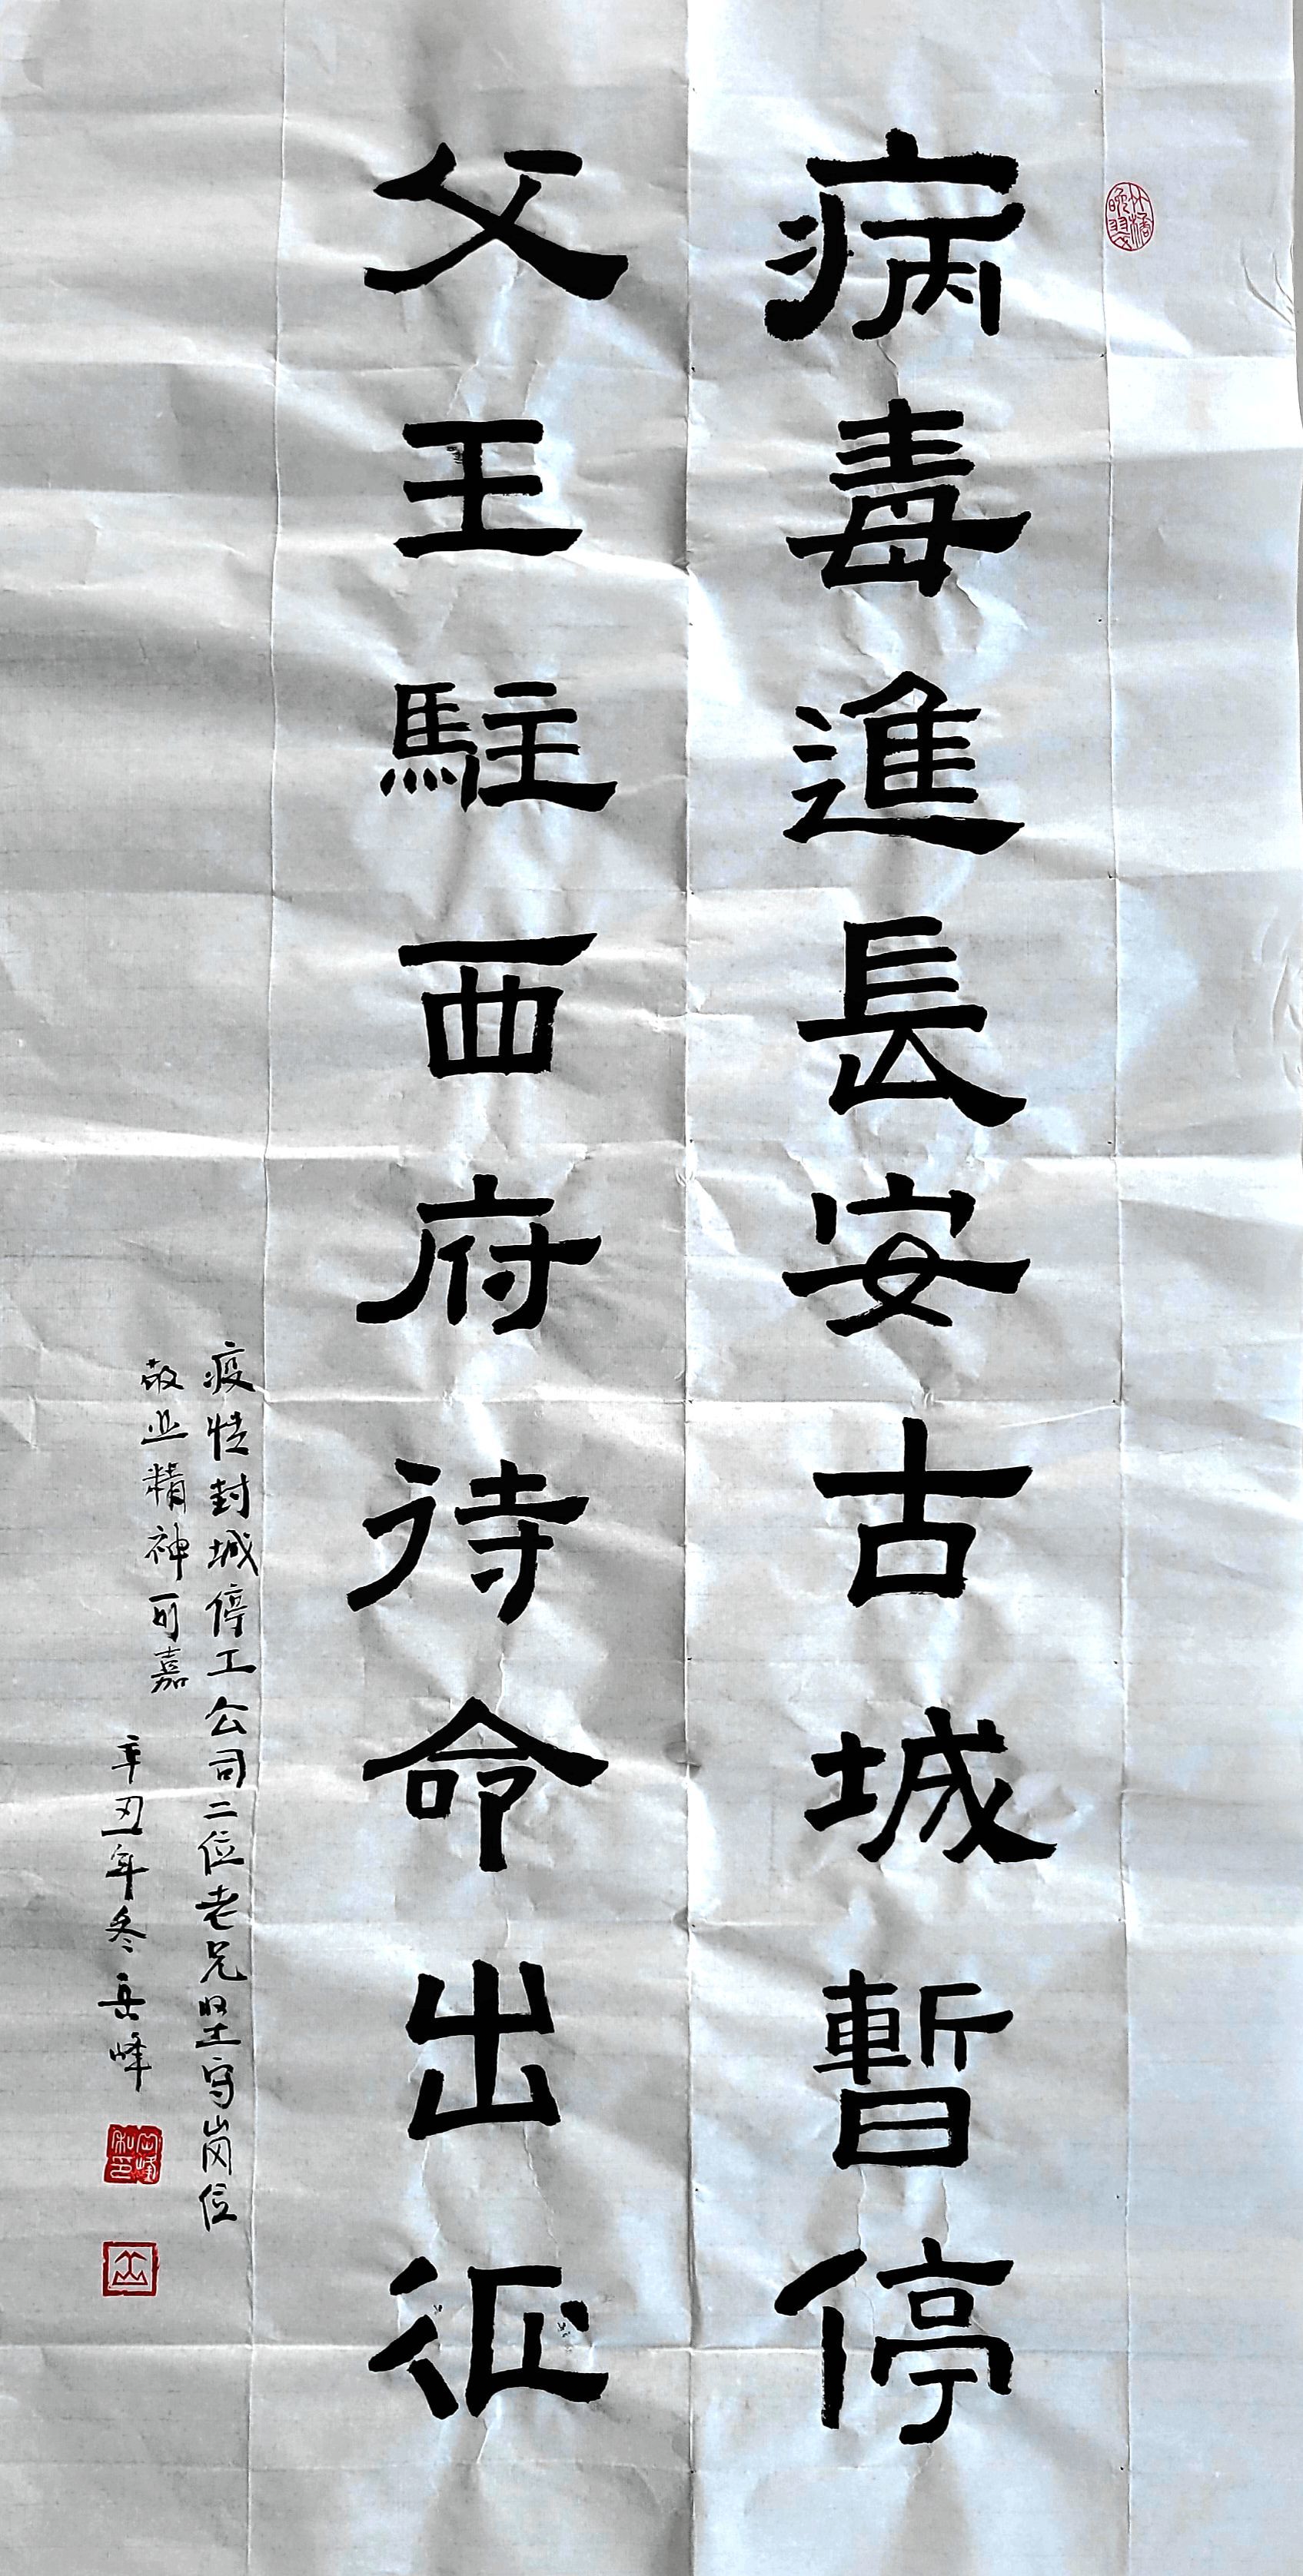 病毒進長安古城暫停
父王駐西府待命出征
疫情封城停工公司二位老兄坚守岗位
敬业精神可嘉
辛丑年冬岳峰